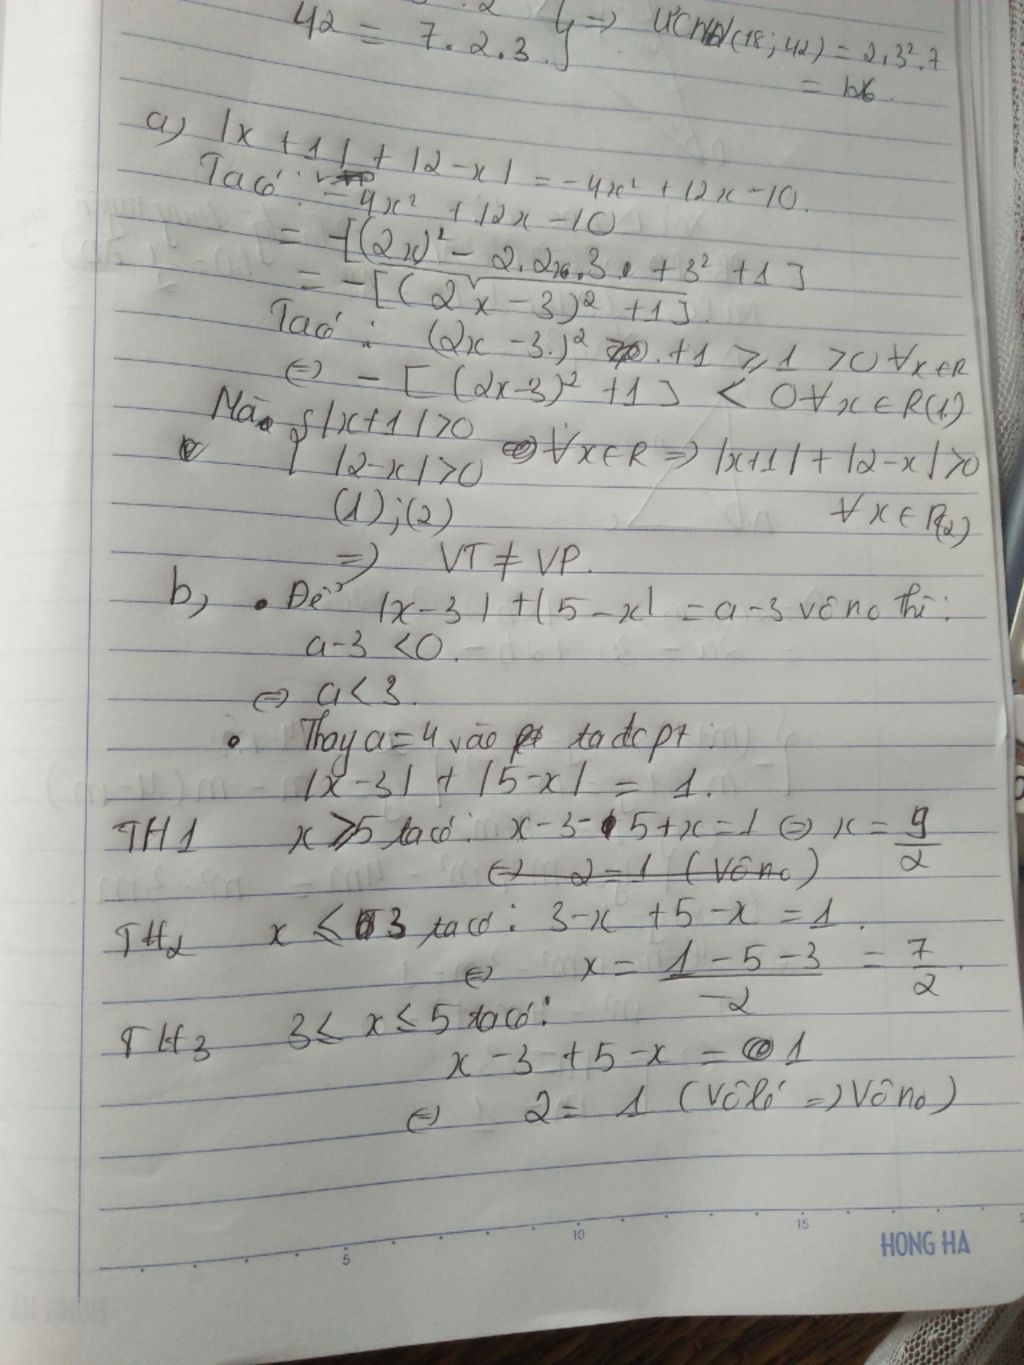 42 = 7.2.3. } => ƯCNN(18; 42) = 2.3².7
= 126.
a) |x + 1| + |2 - x| = -4x² + 12x - 10.
Ta có: -4x² + 12x - 10
= -[(2x)² - 2.2x.3. + 3² + 1]
= -[(2x - 3)² + 1].
Ta có: (2x - 3.)² + 1 ≥ 1 > 0 ∀x∈R
<=> - [(2x-3)² + 1] < 0 ∀x∈R(1)
Mà { |x+1| > 0
|2-x| > 0 ∀x∈R => |x+1| + |2-x| > 0
(1);(2) ∀x∈R(2)
=> VT ≠ VP.
b, • Để |x-3| + |5-x| = a-3 vô no thì:
a-3 < 0.
<=> a < 3.
• Thay a = 4 vào pt ta đc pt:
|x-3| + |5-x| = 1.
TH1 x ≥ 5 ta có: x-3-5+x = 1 <=> x = 9/2
<=> 2 = 1 (Vô no)
TH2 x ≤ 3 ta có: 3-x + 5-x = 1.
<=> x = (1-5-3)/-2 = 7/2.
TH3 3 ≤ x ≤ 5 ta có:
x - 3 + 5 - x = 1
<=> 2 = 1 (Vô lí => Vô no)
5 10 15
HONG HA